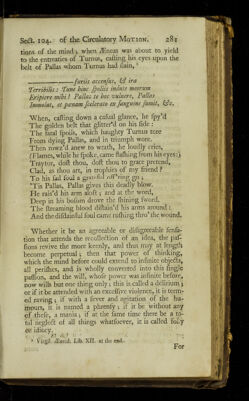 Sect. 104. of the Circulatory Motion. 281
tions of the mind; when Æneas was about to yield
to the entreaties of Turnus, casting his eyes upon the
belt of Pallas whom Turnus had slain,
furiis accensus, & ira
Terribilis: Tune hinc spoliis indute meorum
Eripiere mihi? Pallas te hoc vulnere, Pallas
Immolat, et pœnam scelerato ex sanguine sumit, &c.
When, casting down a casual glance, he spy'd
The golden belt that glitter'd on his side:
The fatal spoils, which haughty Turnus tore
From dying Pallas, and in triumph wore.
Then rowz'd anew to wrath, he loudly cries,
(Flames, while he spoke, came flashing from his eyes:)
Traytor, dost thou, dost thou to grace pretend,
Clad, as thou art, in trophies of my friend?
To his sad soul a grateful off'ring go;
'Tis Pallas, Pallas gives this deadly blow.
He rais'd his arm aloft; and at the word,
Deep in his bosom drove the shining sword.
The streaming blood distain'd his arms around:
And the disdainful soul came rushing thro' the wound.
Whether it be an agreeable or disagreeable sensa-
tion that attends the recollection of an idea, the pas-
sions revive the more keenly, and thus may at length
become perpetual; then that power of thinking,
which the mind before could extend to infinite objects,
all perishes, and is wholly converted into this single
passion, and the will, whose power was infinite before,
now wills but one thing only; this is called a delirium;
or if it be attended with an excessive violence, it is term-
ed raving; if with a fever and agitation of the hu-
mours, it is named a phrensy; if it be without any
of these, a mania; if at the same time there be a to-
tal neglect of all things whatsoever, it is called folly
or idiocy.
Virgil. Æneid. Lib. XII. at the end.
For